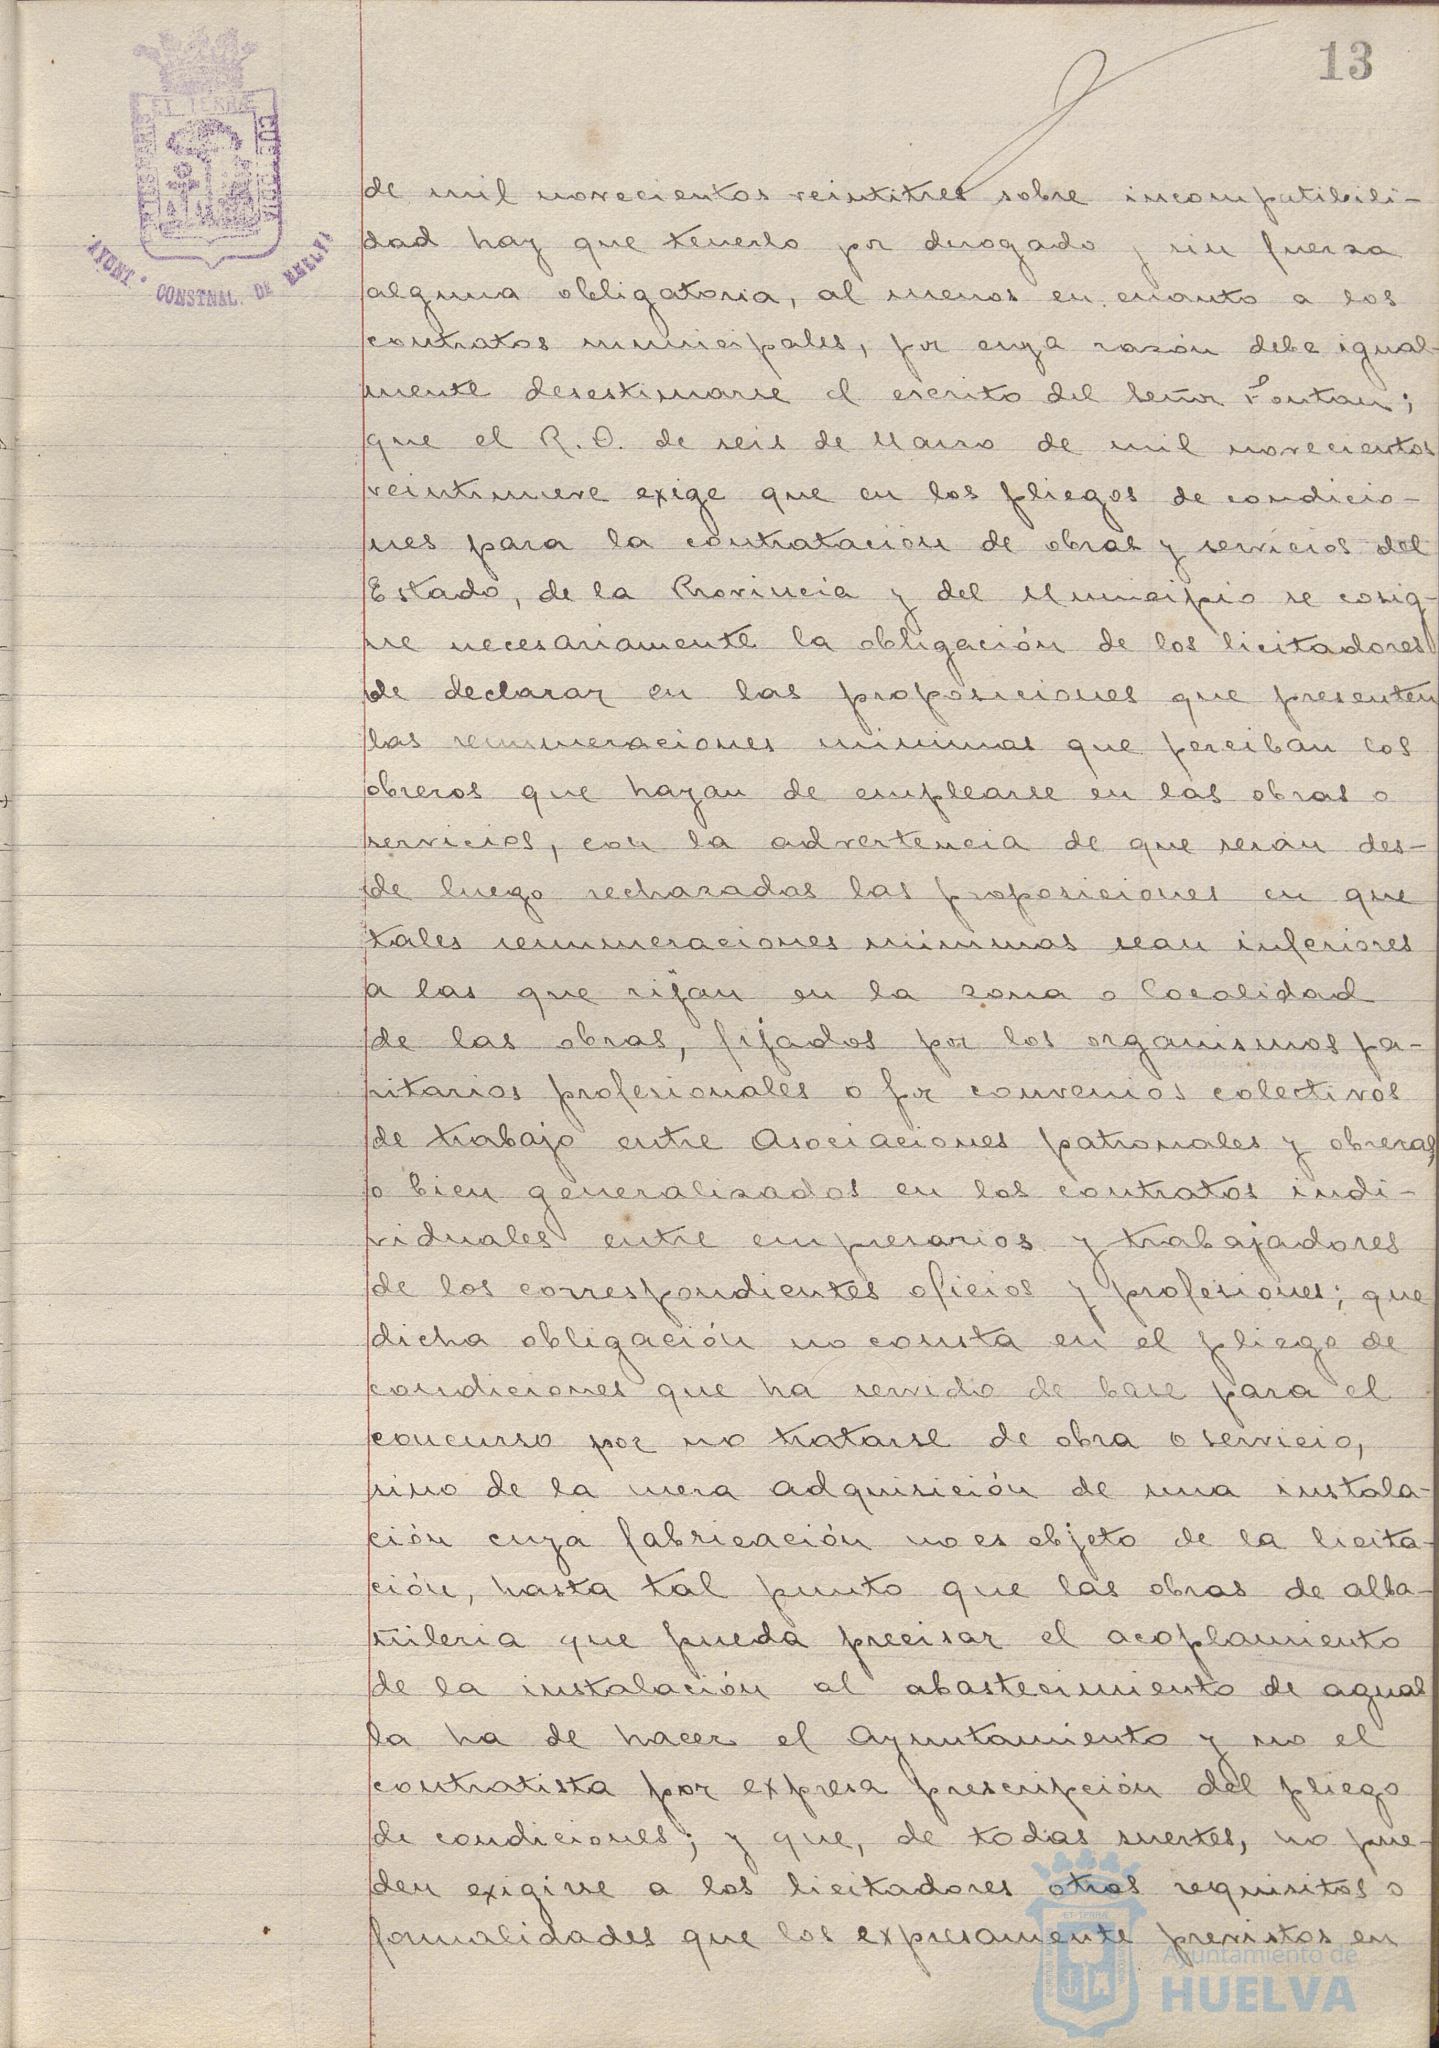 13
ET TERRÆ
AYUNT. CONSTNAL. DE HUELVA
de mil novecientos veintitres sobre incompatibili-
dad hay que tenerlo por derogado y sin fuerza
alguna obligatoria, al menos en cuanto a los
contratos municipales, por cuya razón debe igual-
mente desestimarse el escrito del Señor Fontan;
que el R. D. de seis de Marzo de mil novecientos
veintinueve exige que en los pliegos de condicio-
nes para la contratación de obras y servicios del
Estado, de la Provincia y del Municipio se cosig-
ne necesariamente la obligación de los licitadores
de declarar en las proposiciones que presenten
las remuneraciones minimas que perciban los
obreros que hayan de emplearse en las obras o
servicios, con la advertencia de que serán des-
de luego rechazadas las proposiciones en que
tales remuneraciones minimas sean inferiores
a las que rijan en la zona o localidad
de las obras, fijados por los organismos pa-
ritarios profesionales o por convenios colectivos
de trabajo entre Asociaciones patronales y obreras,
o bien generalizados en los contratos indi-
viduales entre empresarios y trabajadores
de los correspondientes oficios y profesiones; que
dicha obligación no consta en el pliego de
condiciones que ha servido de base para el
concurso por no tratarse de obra o servicio,
sino de la mera adquisición de una instala-
ción cuya fabricación no es objeto de la licita-
ción, hasta tal punto que las obras de alba-
ñileria que pueda precisar el acoplamiento
de la instalación al abastecimiento de aguas
la ha de hacer el Ayuntamiento y no el
contratista por expresa prescripción del pliego
de condiciones; y que, de todas suertes, no pue-
den exigirse a los licitadores otros requisitos o
formalidades que los expresamente previstos en
Ayuntamiento de
HUELVA